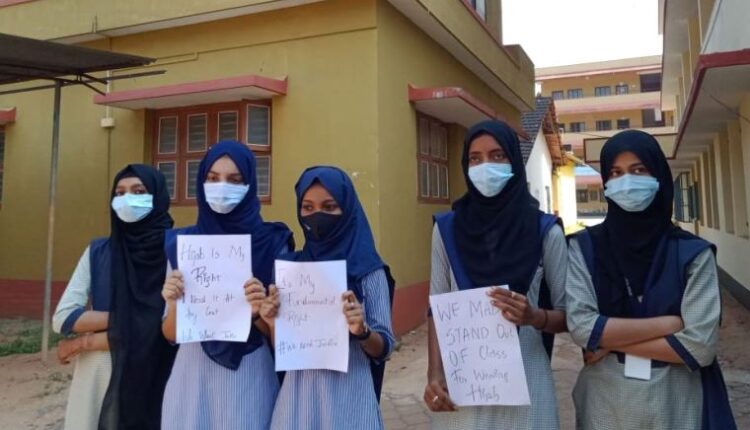 Hijab Is My
Right
I Need It At
Any Cost
We Want
Is My
Fundamental
Right
#We need Justice
WE
STAND Out
OF Class
For Wearing
Hijab